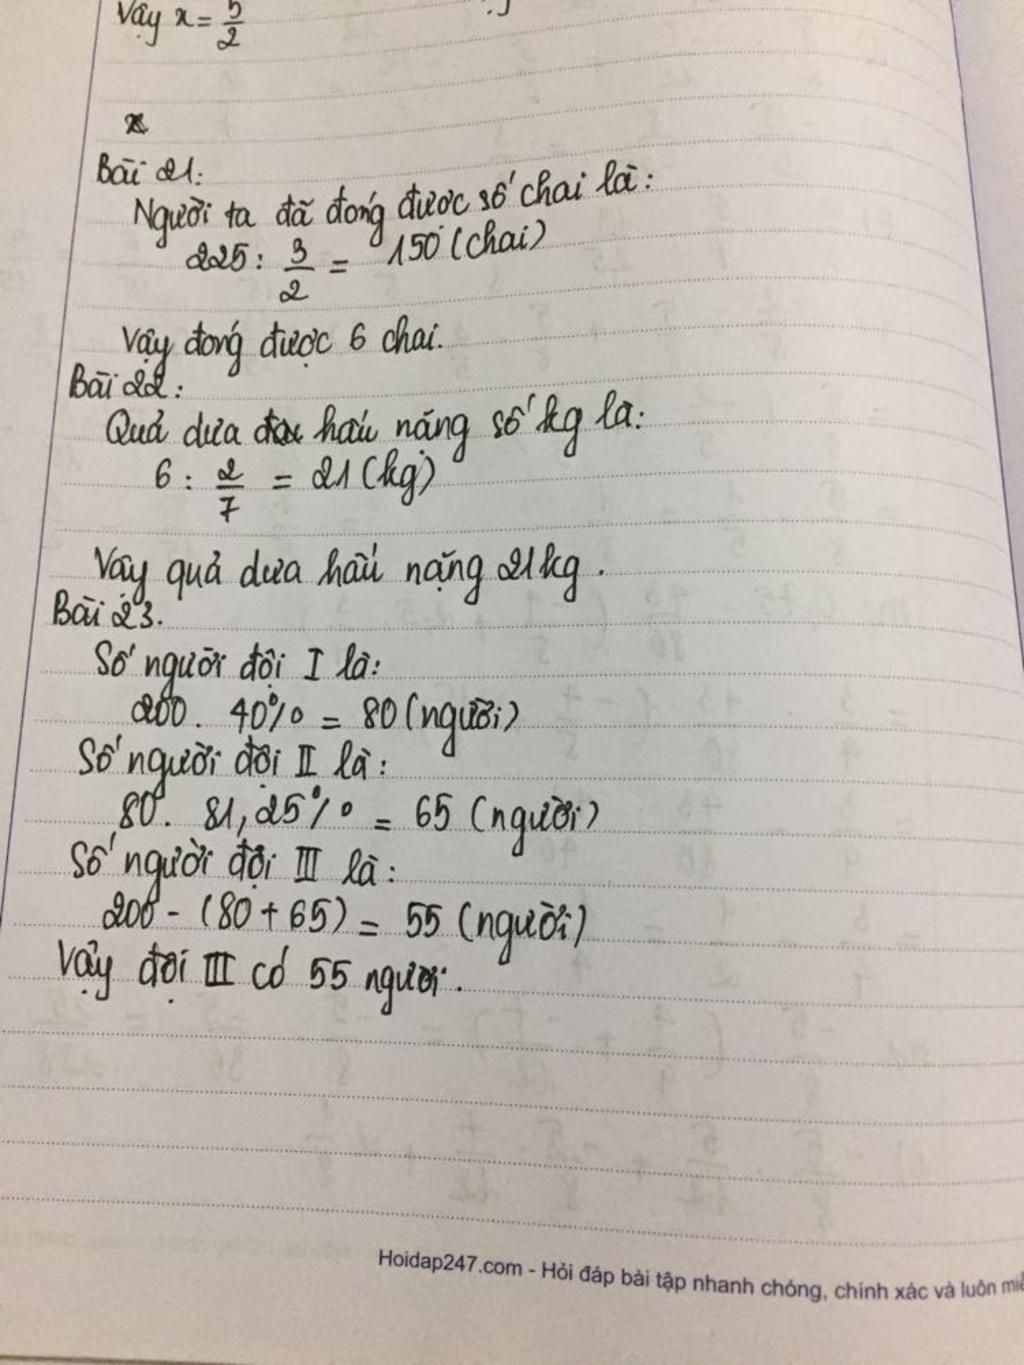 Vậy x = 5/2
Bài 21:
Người ta đã đong được số chai là:
225 : 3/2 = 150 (chai)
Vậy đong được 6 chai.
Bài 22:
Quả dưa hấu nặng số kg là:
6 : 2/7 = 21 (kg)
Vậy quả dưa hấu nặng 21kg.
Bài 23.
Số người đội I là:
200 . 40% = 80 (người)
Số người đội II là:
80 . 81,25% = 65 (người)
Số người đội III là:
200 - (80 + 65) = 55 (người)
Vậy đội III có 55 người.
Hoidap247.com - Hỏi đáp bài tập nhanh chóng, chính xác và luôn